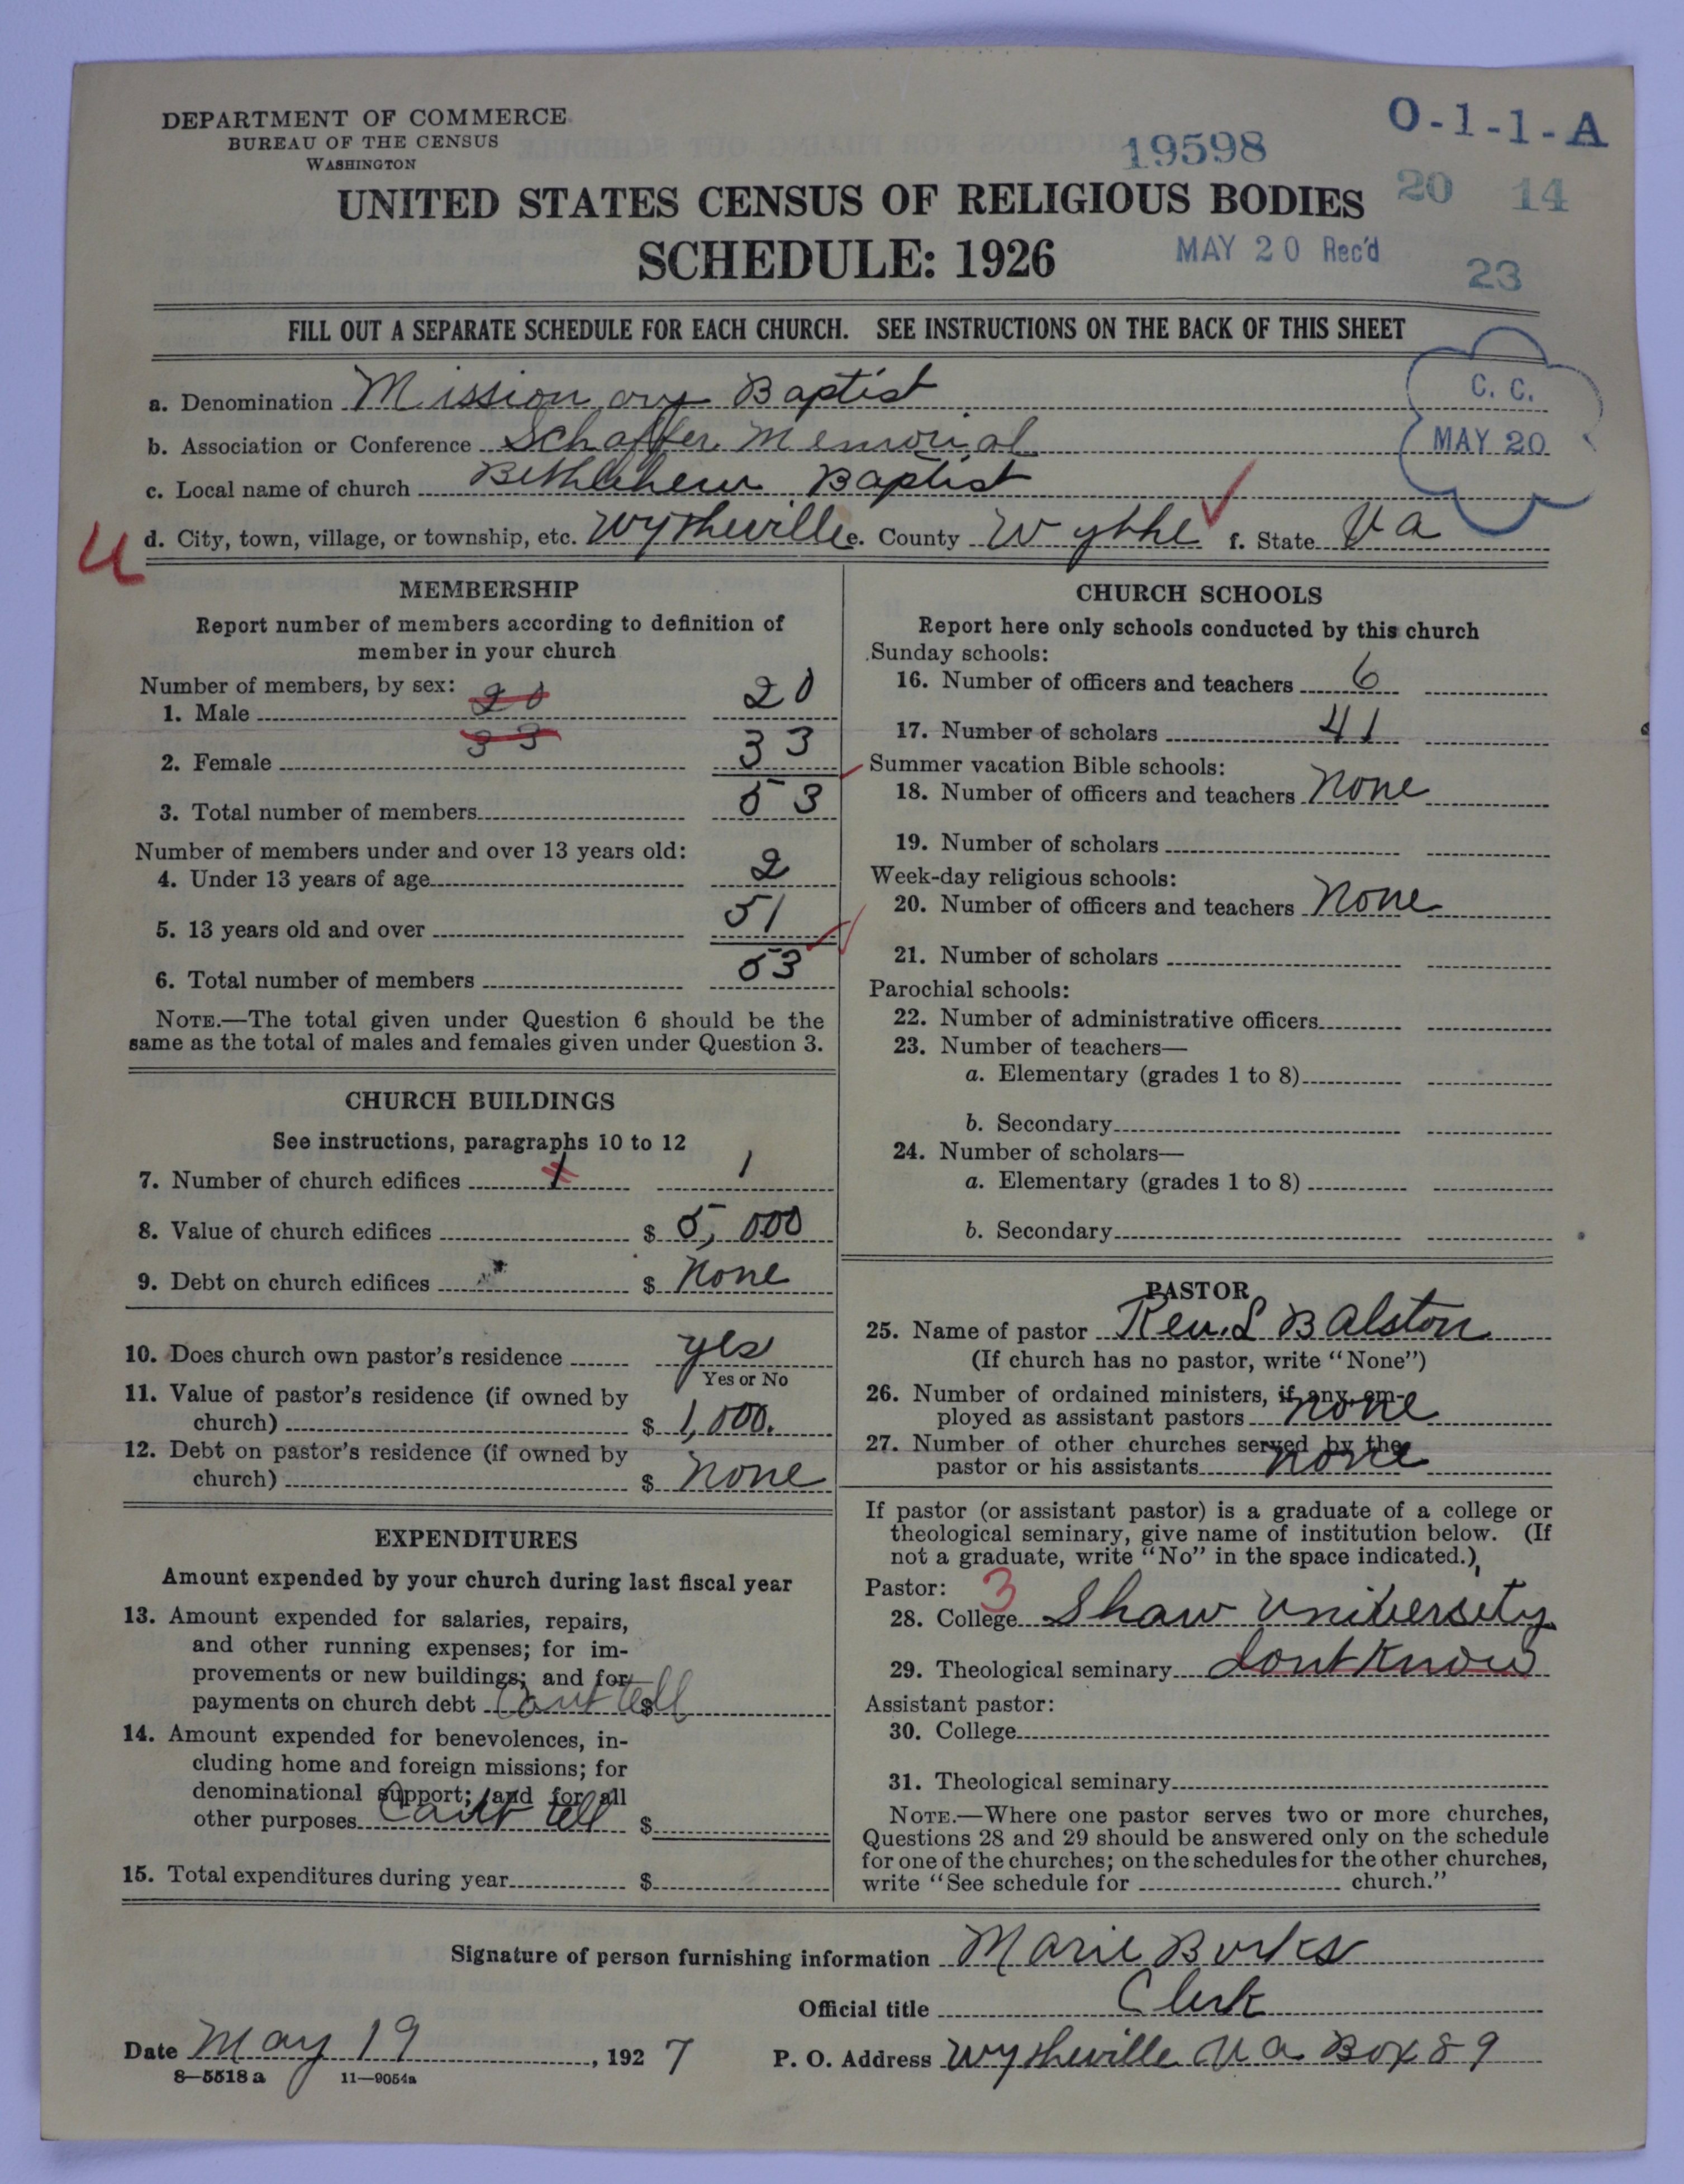 DEPARTMENT OF COMMERCE
BUREAU OF THE CENSUS
WASHINGTON
19598
O-1-1-A
20 14
UNITED STATES CENSUS OF RELIGIOUS BODIES
SCHEDULE: 1926
MAY 20 Rec'd
23
FILL OUT A SEPARATE SCHEDULE FOR EACH CHURCH. SEE INSTRUCTIONS ON THE BACK OF THIS SHEET
C. C.
MAY 20
a. Denomination Missionary Baptist
b. Association or Conference Schaffer Memorial
c. Local name of church Bethlehem Baptist
d. City, town, village, or township, etc. Wytheville e. County Wythe f. State Va
MEMBERSHIP
Report number of members according to definition of
member in your church
Number of members, by sex:
1. Male 20 20
2. Female 33 33
3. Total number of members 53
Number of members under and over 13 years old:
4. Under 13 years of age 2
5. 13 years old and over 51
6. Total number of members 53
NOTE.—The total given under Question 6 should be the
same as the total of males and females given under Question 3.
CHURCH BUILDINGS
See instructions, paragraphs 10 to 12
7. Number of church edifices 1 1
8. Value of church edifices $ 5,000
9. Debt on church edifices $ None
10. Does church own pastor's residence yes
Yes or No
11. Value of pastor's residence (if owned by
church) $ 1,000.
12. Debt on pastor's residence (if owned by
church) $ none
EXPENDITURES
Amount expended by your church during last fiscal year
13. Amount expended for salaries, repairs,
and other running expenses; for im-
provements or new buildings; and for
payments on church debt Cant tell $
14. Amount expended for benevolences, in-
cluding home and foreign missions; for
denominational support; and for all
other purposes Cant tell $
15. Total expenditures during year $
CHURCH SCHOOLS
Report here only schools conducted by this church
Sunday schools:
16. Number of officers and teachers 6
17. Number of scholars 41
Summer vacation Bible schools:
18. Number of officers and teachers None
19. Number of scholars
Week-day religious schools:
20. Number of officers and teachers None
21. Number of scholars
Parochial schools:
22. Number of administrative officers
23. Number of teachers—
a. Elementary (grades 1 to 8)
b. Secondary
24. Number of scholars—
a. Elementary (grades 1 to 8)
b. Secondary
PASTOR
25. Name of pastor Rev. L B Alston
(If church has no pastor, write "None")
26. Number of ordained ministers, if any, em-
ployed as assistant pastors none
27. Number of other churches served by the
pastor or his assistants none
If pastor (or assistant pastor) is a graduate of a college or
theological seminary, give name of institution below. (If
not a graduate, write "No" in the space indicated.)
Pastor: 3
28. College Shaw University
29. Theological seminary dont Know
Assistant pastor:
30. College
31. Theological seminary
NOTE.—Where one pastor serves two or more churches,
Questions 28 and 29 should be answered only on the schedule
for one of the churches; on the schedules for the other churches,
write "See schedule for church."
Signature of person furnishing information Marie Burks
Official title Clerk
Date May 19, 1927 P. O. Address Wytheville Va Box 89
8—5518 a 11—9054a